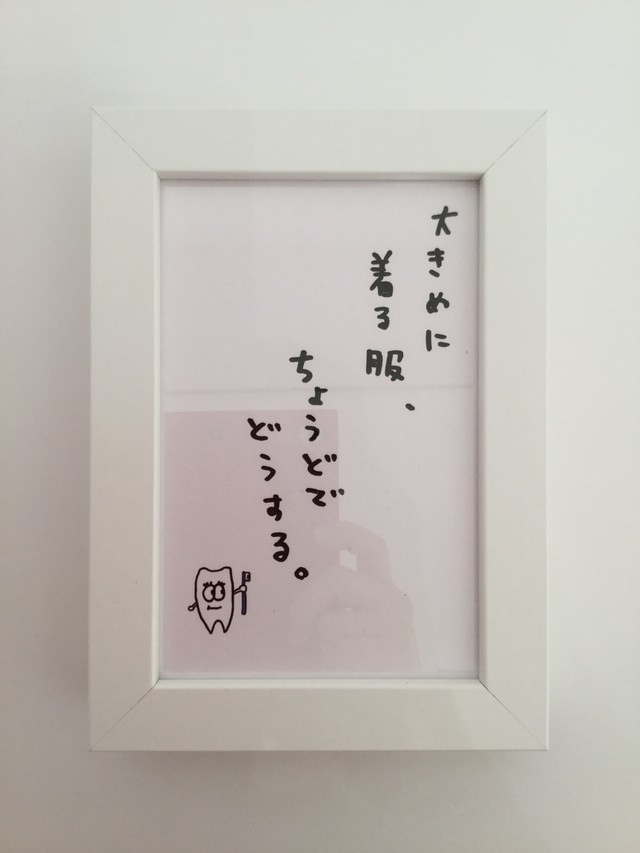 大きめに
着る服、
ちょうどで
どうする。